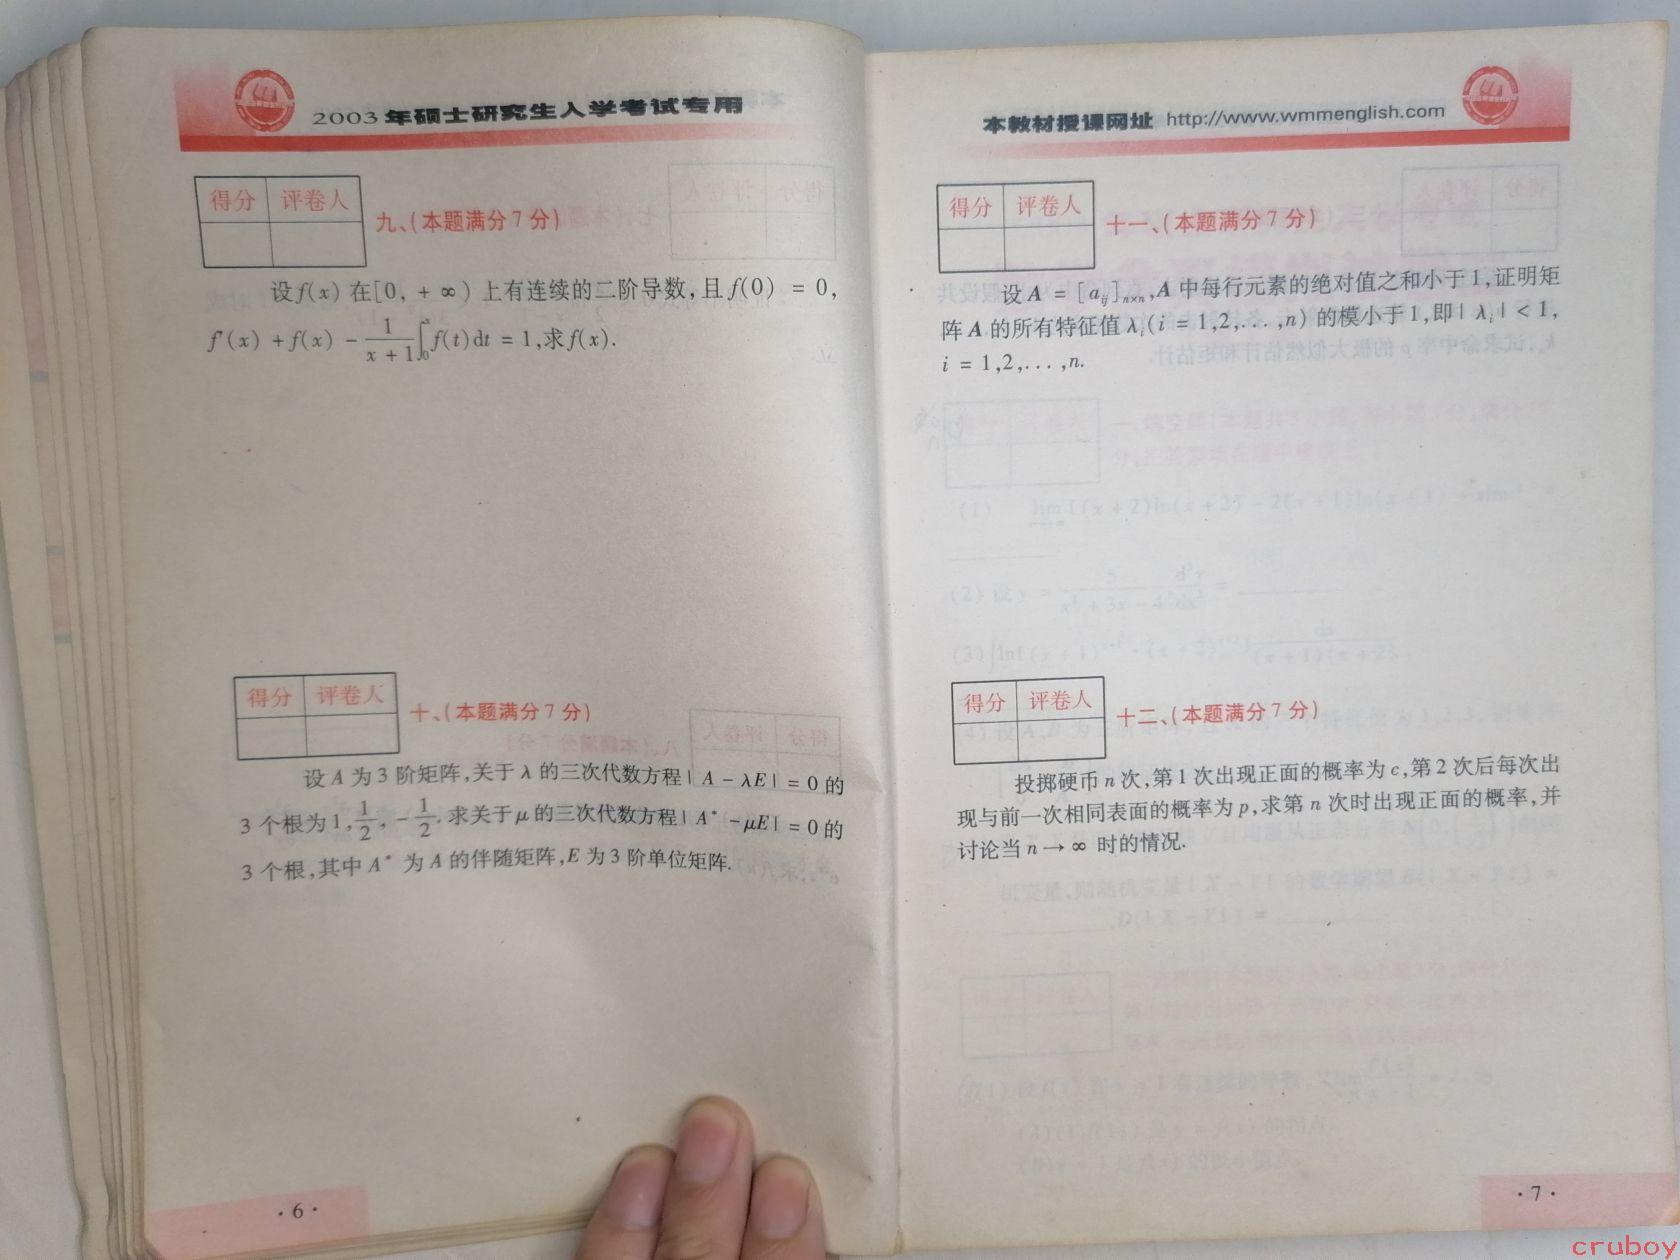 2003年硕士研究生入学考试专用
得分 评卷人
九、(本题满分7分)
设f(x)在[0, +∞)上有连续的二阶导数,且f(0) = 0,
f'(x) + f(x) - \frac{1}{x+1}∫_0^x f(t)dt = 1,求f(x).
得分 评卷人
十、(本题满分7分)
设A为3阶矩阵,关于λ的三次代数方程|A - λE| = 0的
3个根为1, \frac{1}{2}, -\frac{1}{2}.求关于μ的三次代数方程|A* - μE| = 0的
3个根,其中A*为A的伴随矩阵,E为3阶单位矩阵.
·6·
本教材授课网址 http://www.wmmenglish.com
得分 评卷人
十一、(本题满分7分)
设A = [a_{ij}]_{n×n},A中每行元素的绝对值之和小于1,证明矩
阵A的所有特征值λ_i(i = 1,2,...,n)的模小于1,即|λ_i| < 1,
i = 1,2,...,n.
得分 评卷人
十二、(本题满分7分)
投掷硬币n次,第1次出现正面的概率为c,第2次后每次出
现与前一次相同表面的概率为p,求第n次时出现正面的概率,并
讨论当n→∞时的情况.
·7·
cruboy